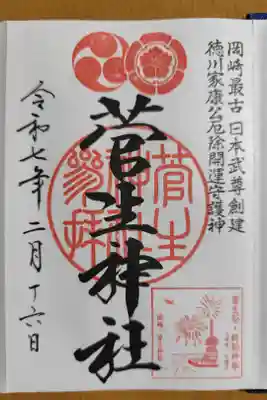 岡崎最古 日本武尊創建
徳川家康公厄除開運守護神
菅生神社
菅生神社参拝
令和七年二月十六日